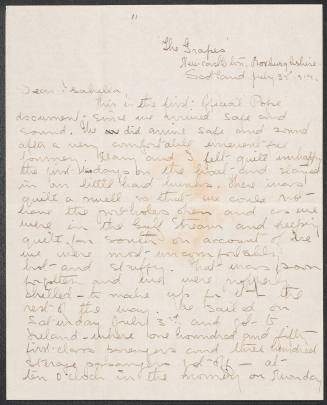 "The Grapes"
Newcastleton, Roxburghshire
Scotland, July 31, 1914.
Dear Isabella:
This is the first Official Pope
document since we arrived safe and
sound. We did arrive safe and sound
after a very comfortable
journey. Mary and I felt quite unhappy
the first days on the boat and stayed
in our little hard bunks. There was
quite a swell so that we could not
have the portholes open and as we
were in the Gulf Stream and keeping
quite far south on account of ice
we were most uncomfortably
hot and stuffy. That was soon
forgotten and we were properly
chilled to make up for it the
rest of the way. We sailed on
Saturday July 3rd and got to
Ireland where one hundred and fifty
first class passengers and three hundred
steerage passengers got off at
ten o'clock in the morning on Sunday